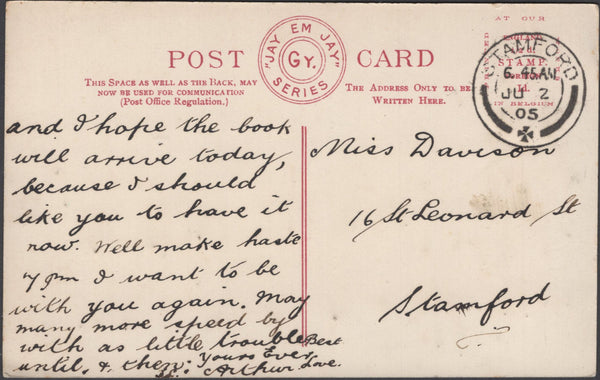 POST CARD
"JAY EM JAY"
Gy.
SERIES
THIS SPACE AS WELL AS THE BACK, MAY
NOW BE USED FOR COMMUNICATION
(Post Office Regulation.)
THE ADDRESS ONLY TO BE
WRITTEN HERE.
AT OUR
STAMP.
IN BELGIUM
STAMFORD
6.45AM
JU 2
05
and I hope the book
will arrive today,
because I should
like you to have it
now. Well make haste
7pm I want to be
with you again. May
many more speed by
with as little trouble
until, & then: Yours Ever
Best
Arthur Love.
Miss Davison
16 St Leonard St
Stamford